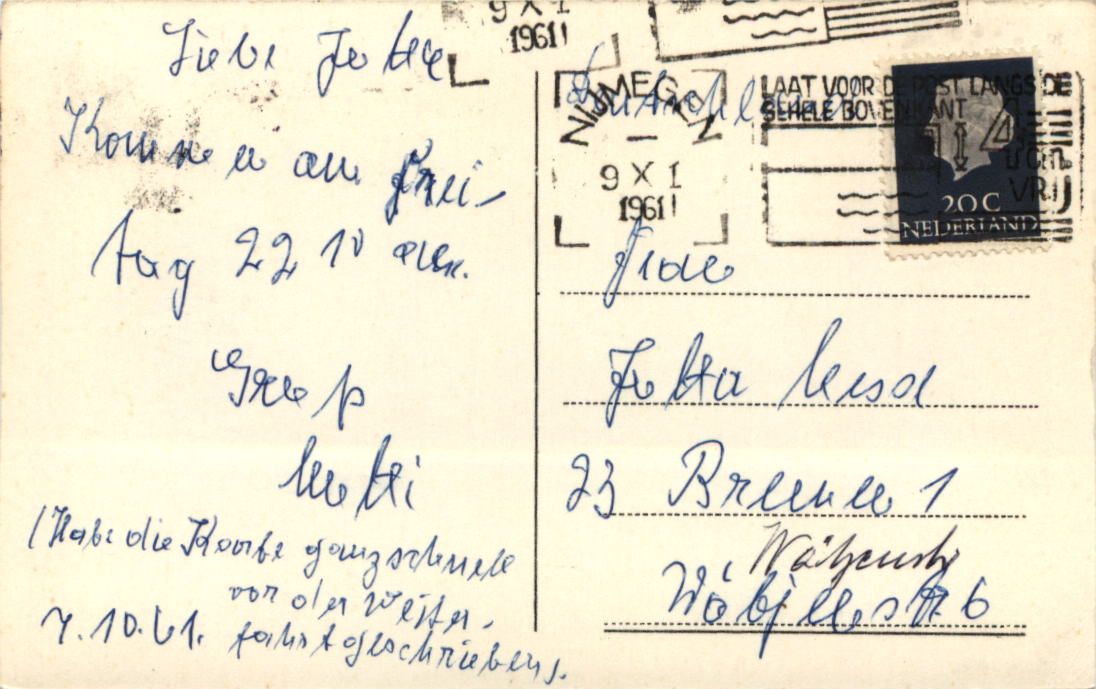 Liebe Jutta
Komme am Frei-
tag 22 10 an.
Gruß
Mutti
(Habe die Karte ganz schnell
vor der Weiter-
7.10.61. fahrt geschrieben).
9 X 1
1961!
NIJMEGEN
9 X 1
1961!
LAAT VOOR DE POST LANGS DE
GEHELE BOVENKANT
VRIJ
20 C
NEDERLAND
Frau
Jutta
23 Bremen 1